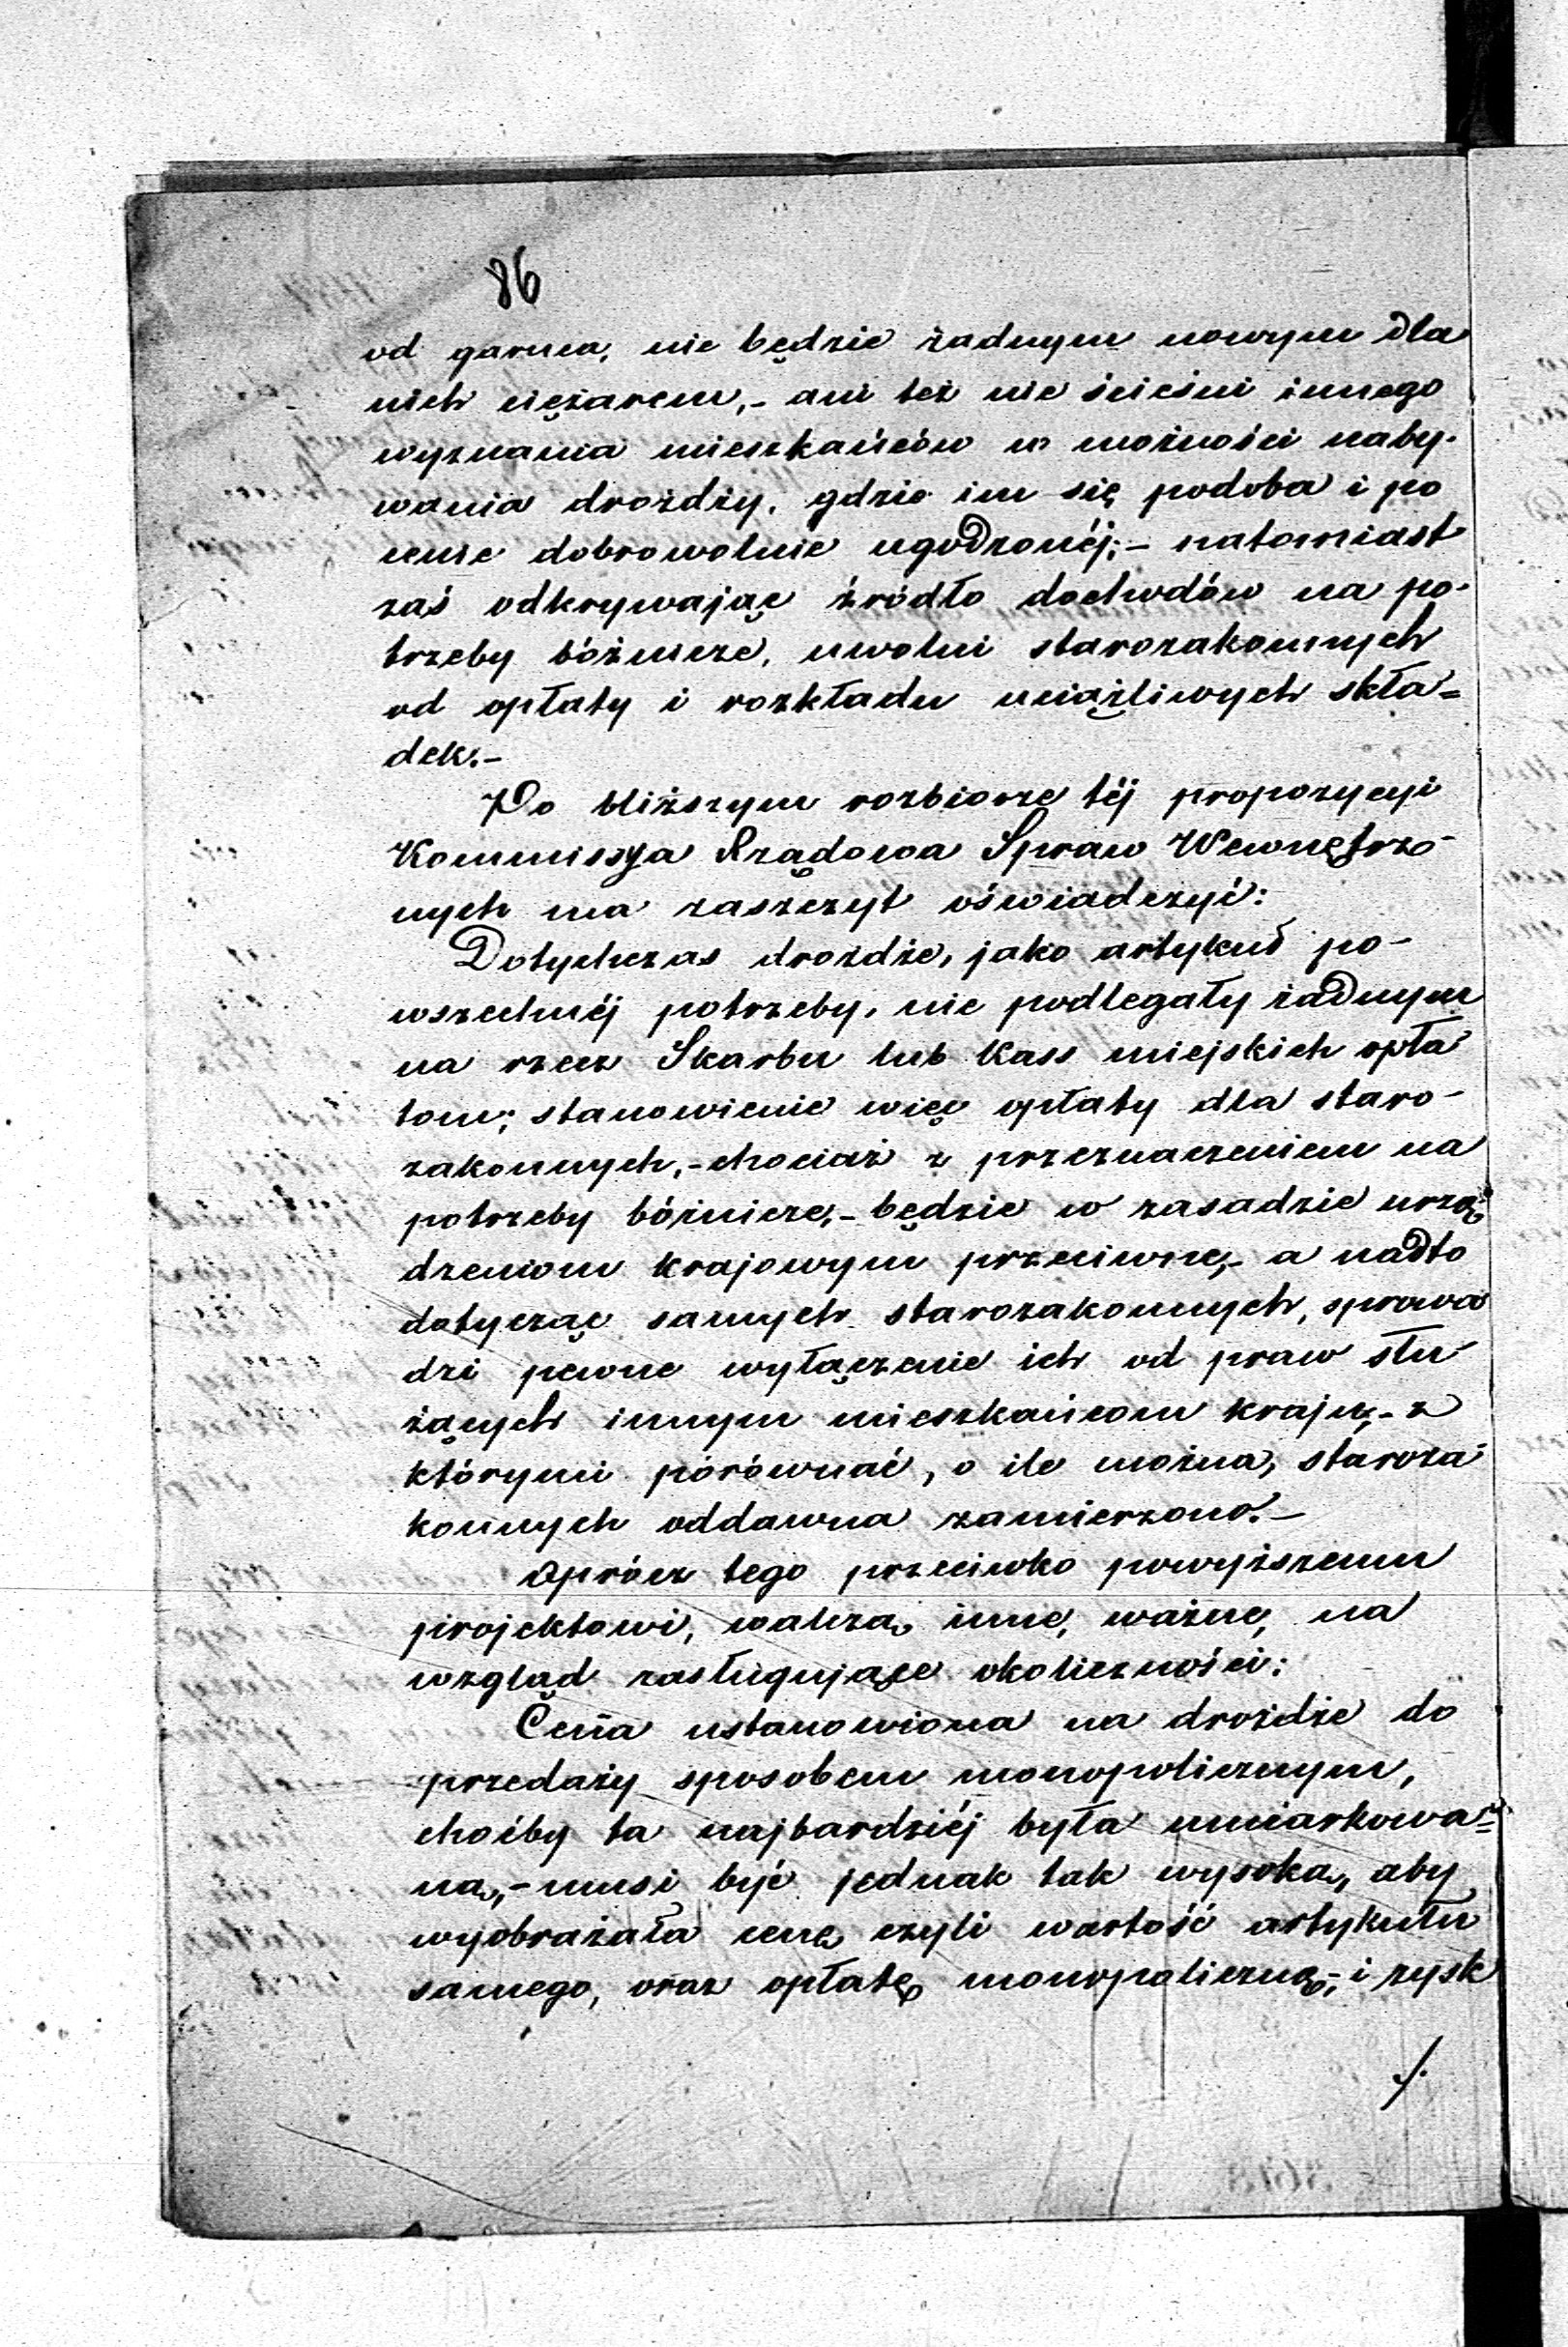 86
od garnca, nie będzie żadnym nowym dla
nich ciężarem,- ani też nie ścieśni innego
wyznania mieszkańców w możności naby-
wania drożdży, gdzie im się podoba i po
cenie dobrowolnie ugodzonéj;- natomiast
zaś odkrywając źródło dochodów na po-
trzeby bóżnicze, uwolni starozakonnych
od opłaty i rozkładu uciążliwych skła=
dek.-
Po bliższym rozbiorze téj propozycyi
Kommissya Rządowa Spraw Wewnętrz-
nych ma zaszczyt oświadczyć:
Dotychczas drożdże, jako artykuł po-
wszechnéj potrzeby, nie podlegały żadnym
na rzecz Skarbu lub Kass miejskich opła-
tom; stanowienie więc opłaty dla staro-
zakonnych,- chociaż z przeznaczeniem na
potrzeby bóżnicze,- będzie w zasadzie urzą-
dzeniom krajowym przeciwne,- a nadto
dotycząc samych starozakonnych, sprowa-
dzi pewne wyłączenie ich od praw słu-
żących innym mieszkańcom kraju,- z
którymi porównać, o ile można, staroza-
konnych oddawna zamierzono.-
Oprócz tego przeciwko powyższemu
projektowi, walczą inne, ważne, na
wzgląd zasługujące okoliczności:
Cena ustanowiona na drożdże do
przedaży sposobem monopolicznym,
choćby ta najbardziéj była umiarkowa=
ną,- musi być jednak tak wysoką, aby
wyobrażała cenę czyli wartość artykułu
samego, oraz opłatę monopoliczną,- i zysk
./.